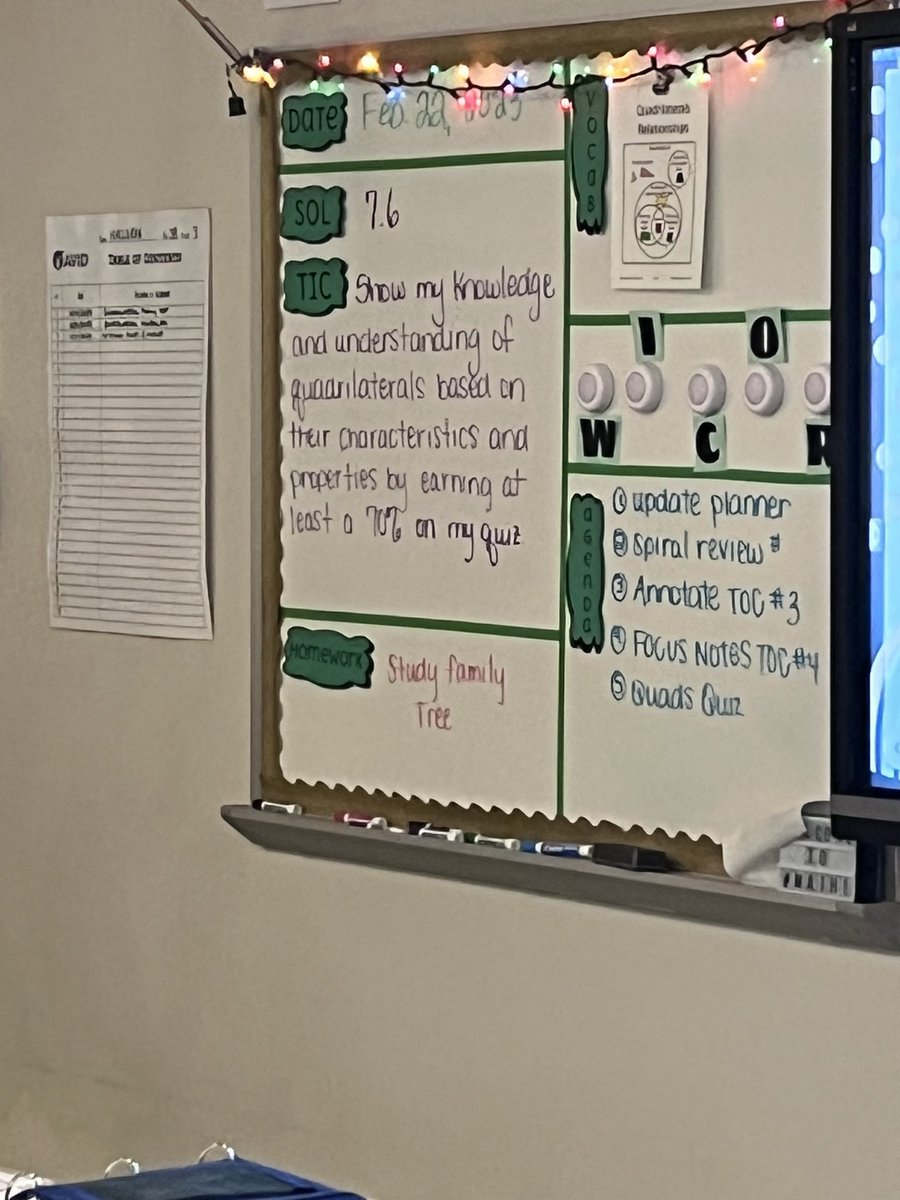 Date
Feb. 22, 2023
SOL
7.6
TIC
Show my knowledge
and understanding of
quadrilaterals based on
their characteristics and
properties by earning at
least a 70% on my quiz
Homework
Study family
Tree
VOCaB
Quadrilateral
Relationships
I O
W C R
agenda
① update planner
② Spiral review #
③ Annotate TOC #3
④ FOCUS NOTES TOC #4
⑤ Quads Quiz
AVID
TO